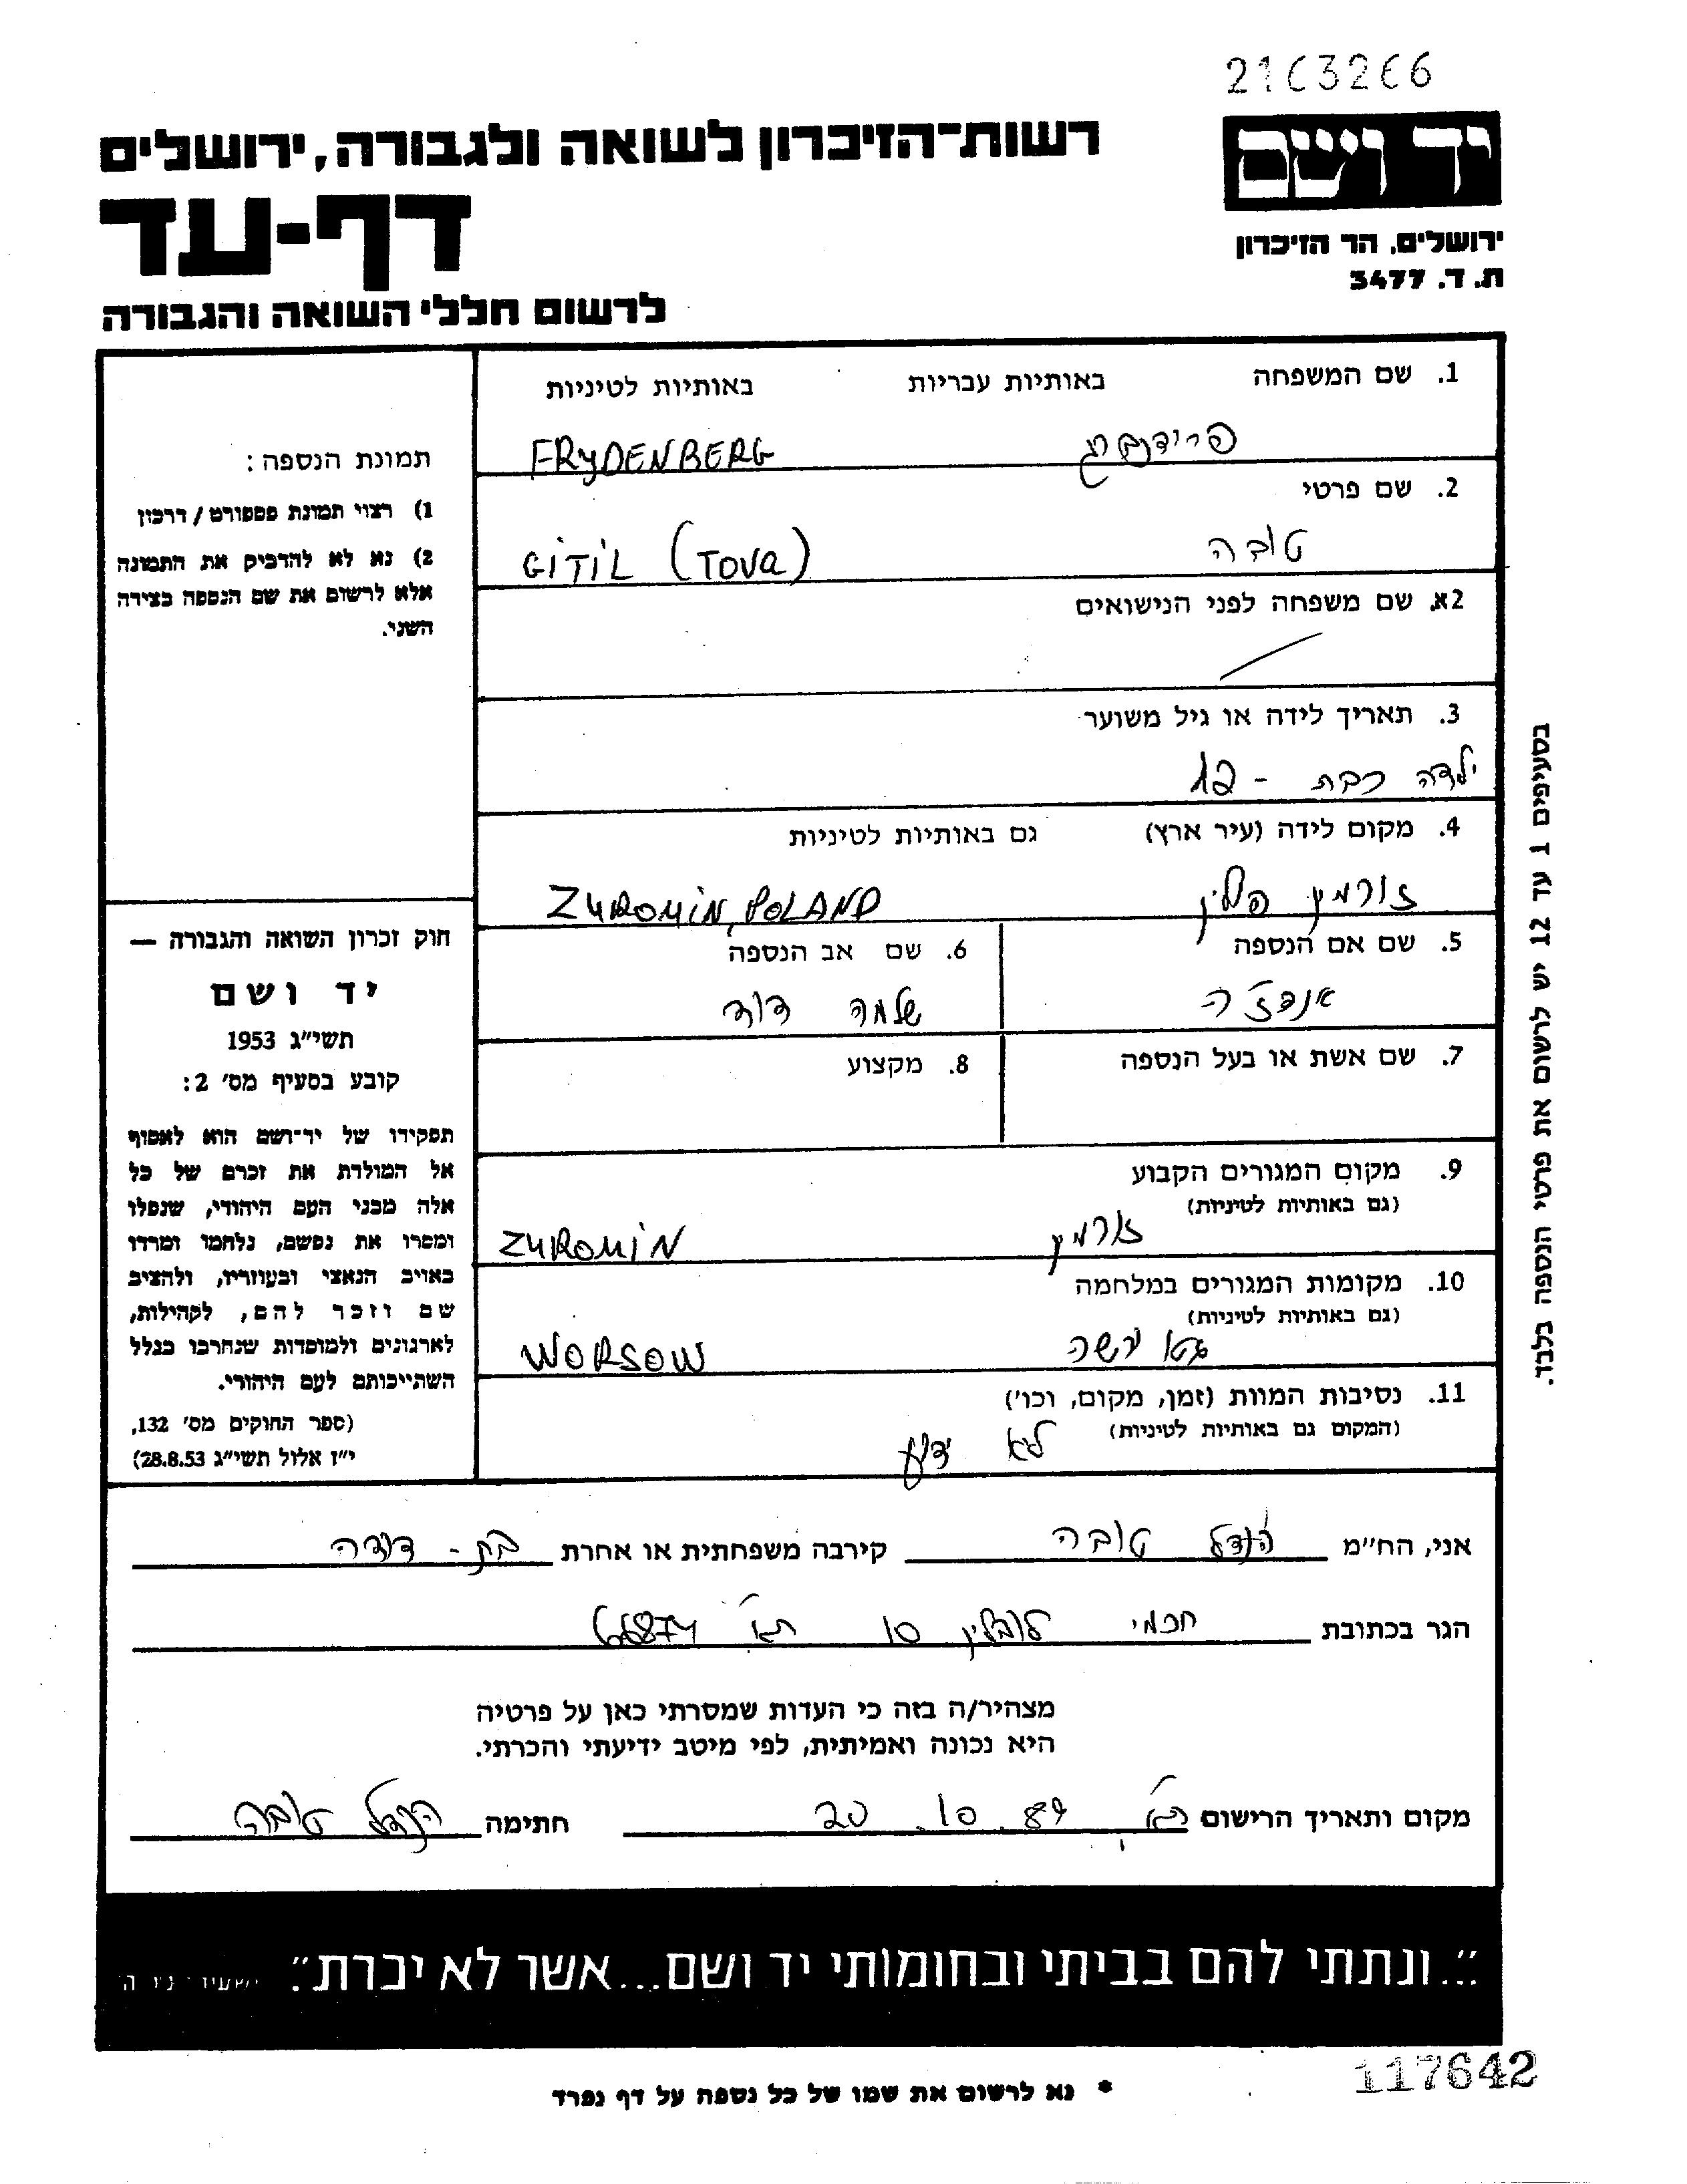 רשות־הזיכרון לשואה ולגבורה, ירושלים
יד ושם
דף-עד
ירושלים. הר הזיכרון
ת. ד. 3477
לרשום חללי השואה והגבורה
1. שם המשפחה באותיות עבריות באותיות לטיניות
פרידנברג FRYDENBERG
2. שם פרטי
טובה GITIL (TOVA)
2א. שם משפחה לפני הנישואים
3. תאריך לידה או גיל משוער
ילדה כבת - 12
4. מקום לידה (עיר ארץ) גם באותיות לטיניות
זורמין פולין ZUROMIN, POLAND
5. שם אם הנספה
6. שם אב הנספה
שלמה דוד
7. שם אשת או בעל הנספה
8. מקצוע
9. מקום המגורים הקבוע
(גם באותיות לטיניות)
זורמין ZUROMIN
10. מקומות המגורים במלחמה
(גם באותיות לטיניות)
גטו ורשה WORSOW
11. נסיבות המוות (זמן, מקום, וכו')
(המקום גם באותיות לטיניות)
לא ידוע
תמונת הנספה:
1) רצוי תמונת פספורט / דרכון
2) נא לא להדביק את התמונה
אלא לרשום את שם הנספה בצידה
השני.
חוק זכרון השואה והגבורה —
יד ושם
תשי"ג 1953
קובע בסעיף מס' 2:
תפקידו של יד־ושם הוא לאסוף
אל המולדת את זכרם של כל
אלה מבני העם היהודי, שנפלו
ומסרו את נפשם, נלחמו ומרדו
באויב הנאצי ובעוזריו, ולהציב
שם וזכר להם, לקהילות,
לארגונים ולמוסדות שנחרבו בגלל
השתייכותם לעם היהודי.
(ספר החוקים מס' 132,
י"ז אלול תשי"ג 28.8.53)
בסעיפים 1 עד 12 יש לרשום את פרטי הנספה בלבד.
אני, הח"מ הנדל טובה קירבה משפחתית או אחרת בת - דודה
הגר בכתובת חכמי לובלין 10 ת"א 66874
מצהיר/ה בזה כי העדות שמסרתי כאן על פרטיה
היא נכונה ואמיתית, לפי מיטב ידיעתי והכרתי.
מקום ותאריך הרישום ת"א 20.10.89 חתימה הנדל טובה
"...ונתתי להם בביתי ובחומותי יד ושם...אשר לא יכרת". ישעיהו נ"ו ה'
117642
* נא לרשום את שמו של כל נספה על דף נפרד